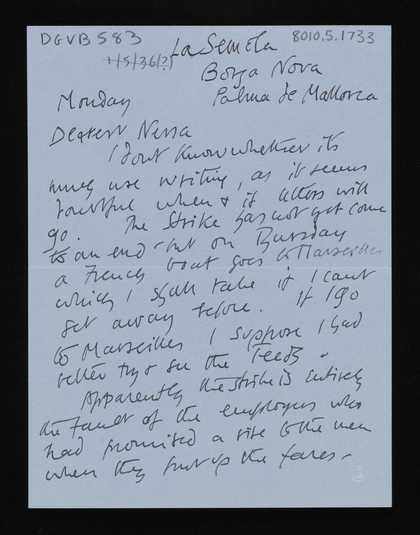 DGVB 583
8010.5.1733
4/5/36(?)
La Semela
Borja Nova
Monday
Palma de Mallorca
Dearest Nessa
I dont know whether its
much use writing, as it seems
doubtful when & if letters will
go. The Strike has not yet come
to an end - but on Thursday
a French boat goes to Marseilles
which I shall take if I cant
get away before. If I go
to Marseilles I suppose I had
better try & see the Teeds.
Apparently the strike is entirely
the fault of the employers who
had promised a rise to the men
when they put up the fares -